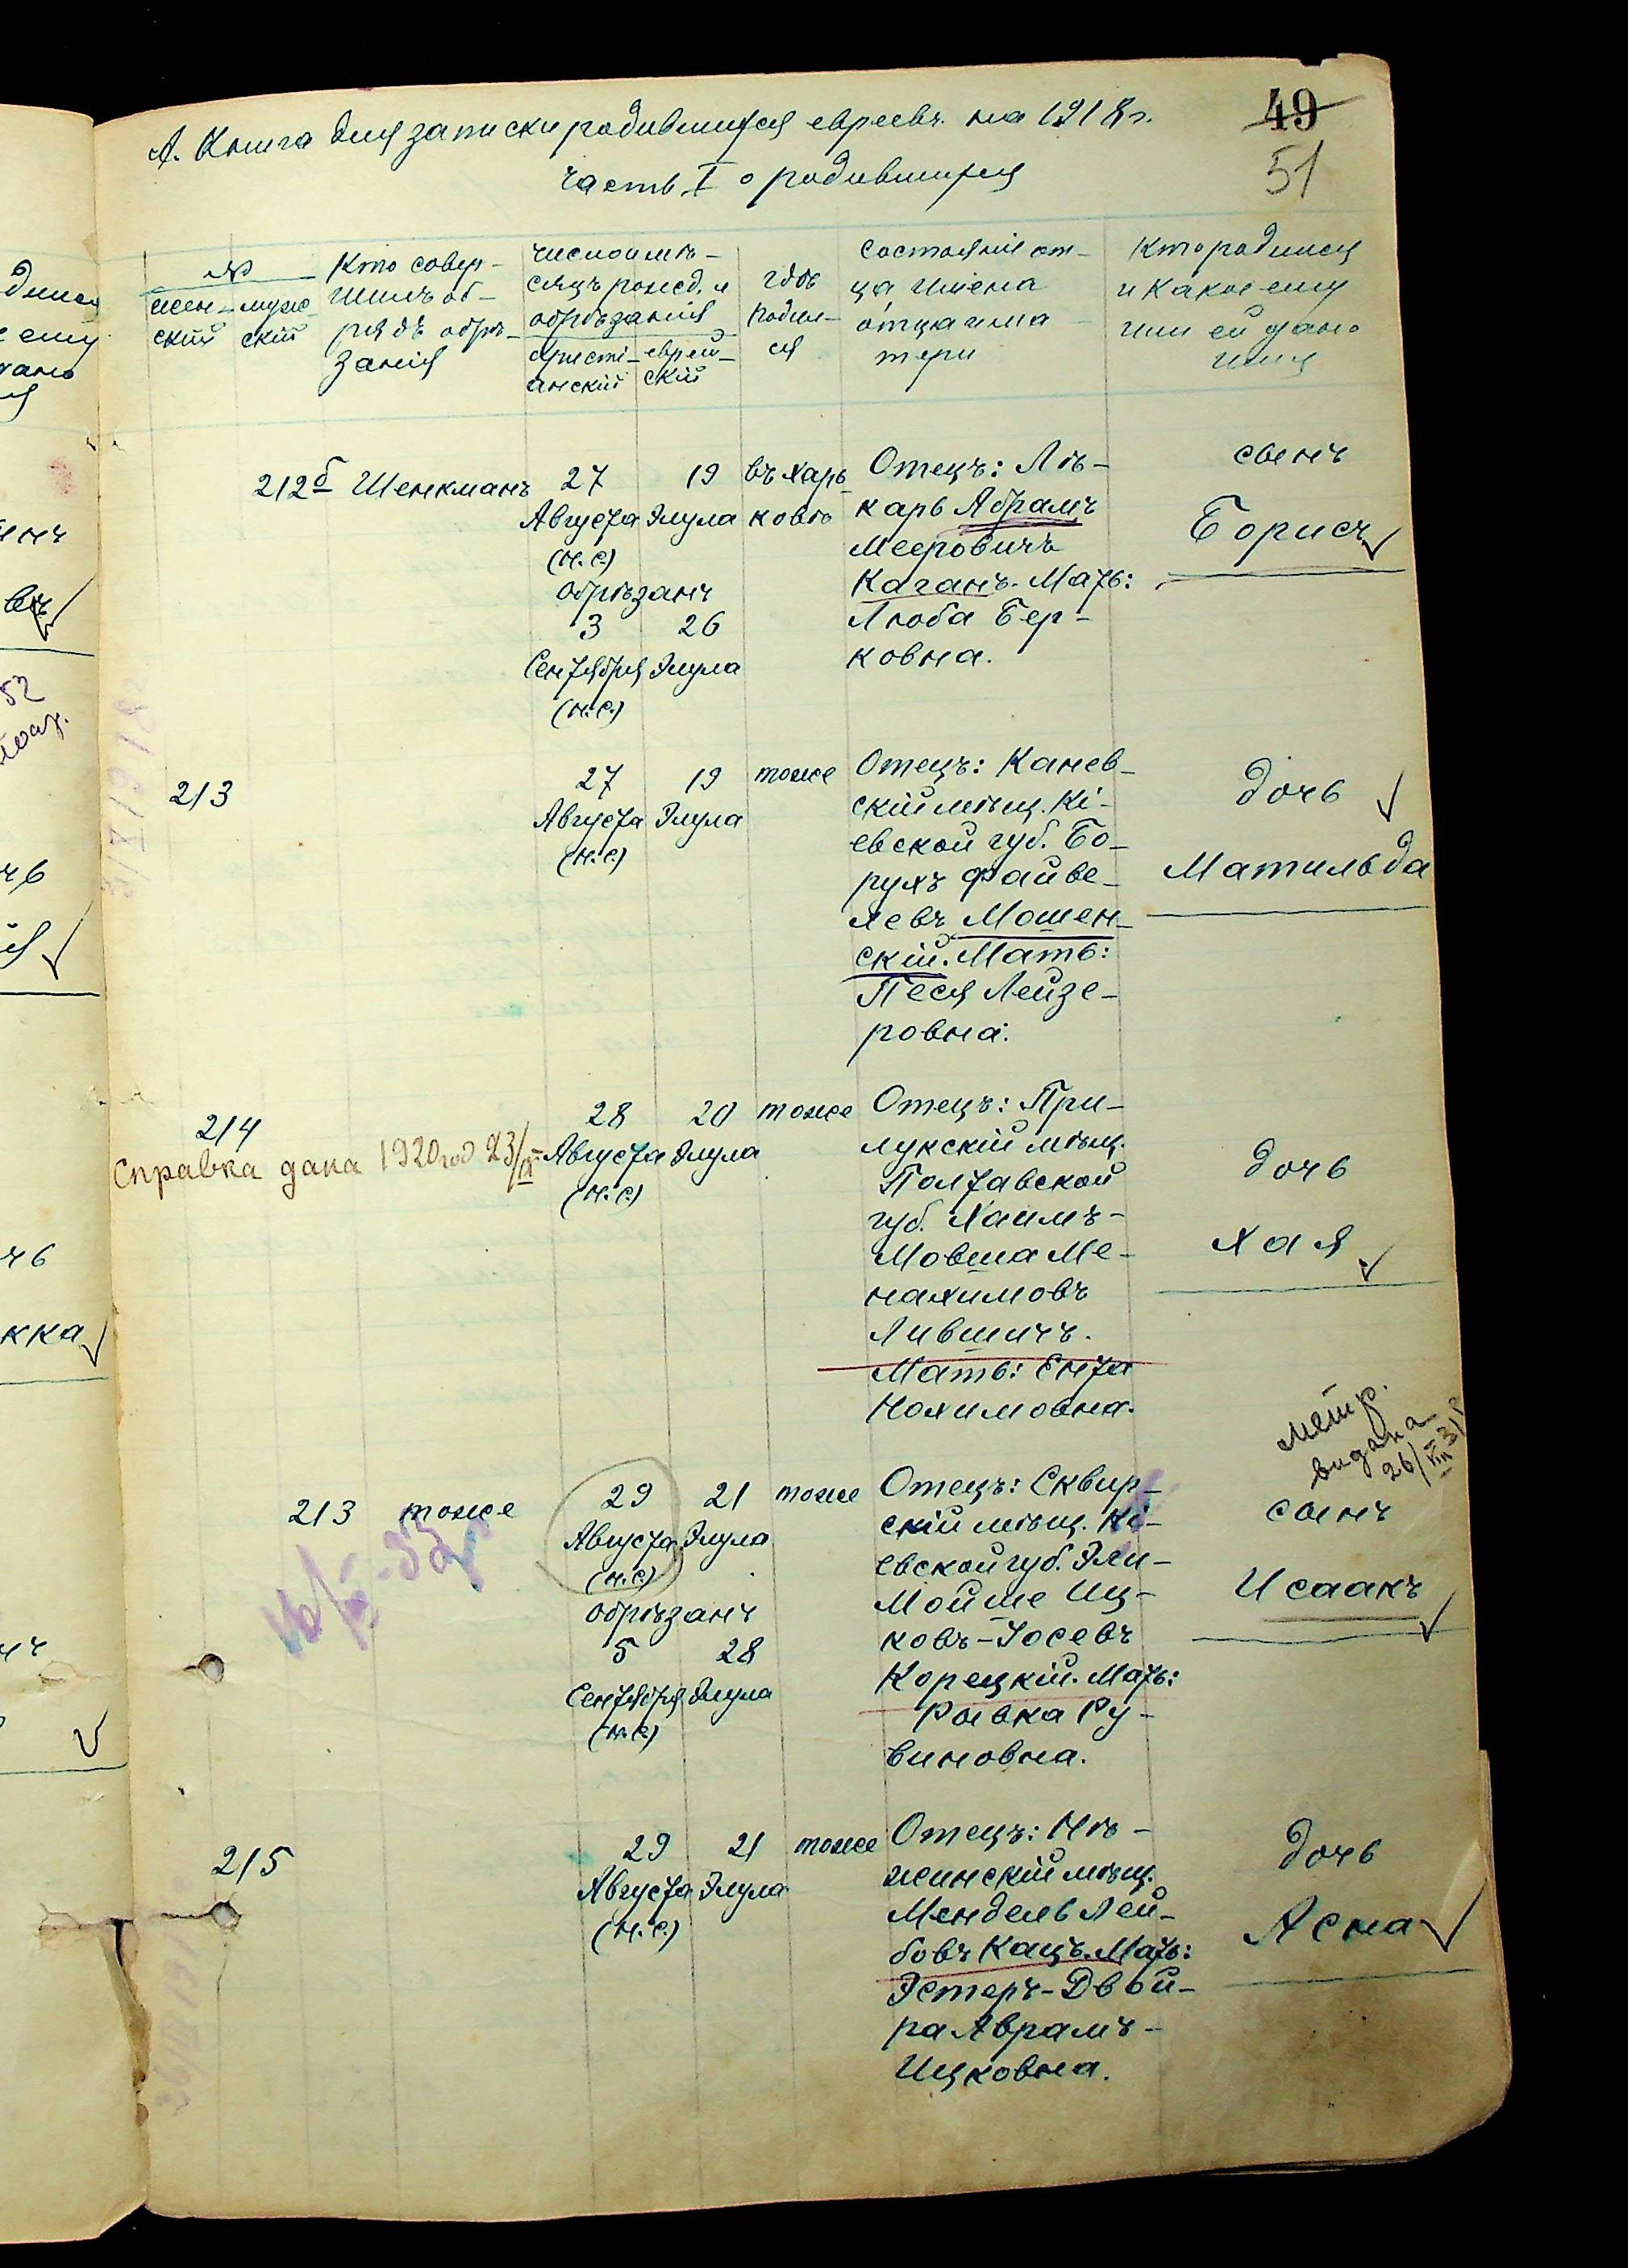 49
51
А. Книга для записки родившихся евреевъ на 1918 г.
Часть I о родившихся
№
жен-
ский
муже
ский
Кто совер-
шилъ об-
рядъ обрѣ-
занія
Число и мѣ-
сяцъ рожд. и
обрѣзанія
христі-
анскій
еврей-
скій
гдѣ
родил-
ся
Состояніе от-
ца имена
отца и ма
тери
Кто родился
и какое ему
или ей дано
имя
212б Шенкманъ
27 19
Августа Элула
(н.с.)
обрѣзанъ
3 26
Сентября Элула
(н.с.)
въ Харь-
ковѣ
Отецъ: Лѣ-
карь Абрамъ
Мееровичъ
Каганъ. Мать:
Люба Бер-
ковна.
сынъ
Борисъ
213
27 19
Августа Элула
(н.с.)
тоже
Отецъ: Канев-
скій мѣщ. Кі-
евской губ. Бо-
рухъ Файве-
левъ Мошен-
скій. Мать:
Песя Лейзе-
ровна.
дочь
Матильда
214
Справка дана 1920 год 23/
28 20
Августа Элула
(н.с.)
тоже
Отецъ: При-
лукскій мѣщ.
Полтавской
губ. Хаимъ-
Мовша Ме-
нахимовъ
Лившичъ.
Мать: Ента
Нохимовна.
дочь
Хая
213 тоже
29 21
Августа Элула
(н.с.)
обрѣзанъ
5 28
Сентября Элула
(н.с.)
тоже
Отецъ: Сквир-
скій мѣщ. Кі-
евской губ. Эли-
Мойше Иц-
ковъ-Іосевъ
Корецкій. Мать:
Рывка Ру-
виновна.
метр.
видана
26/VIII 31р
сынъ
Исаакъ
215
29 21
Августа Элула
(н.с.)
тоже
Отецъ: Нѣ-
жинскій мѣщ.
Мендель Лей-
бовъ Кацъ. Мать:
Эстеръ-Двой-
ра Аврамъ-
Ицковна.
дочь
Асна